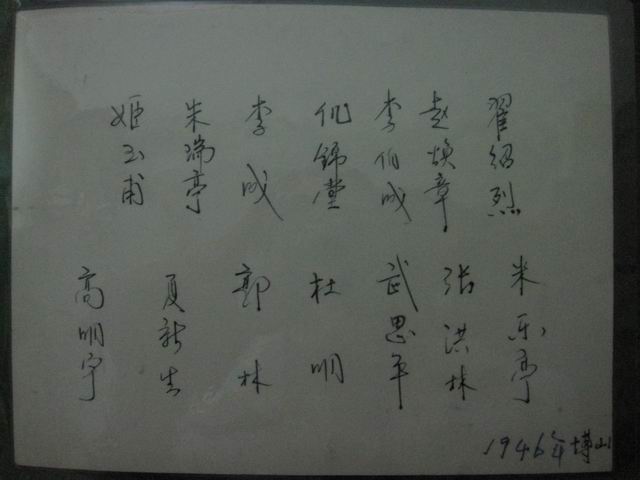 姬玉甫
朱瑞亭
李成
仉錦堂
李伯成
赵焕章
翟绍烈
高明宇
夏新生
郭林
杜明
武思平
张洪林
米乐亭
1946年博山